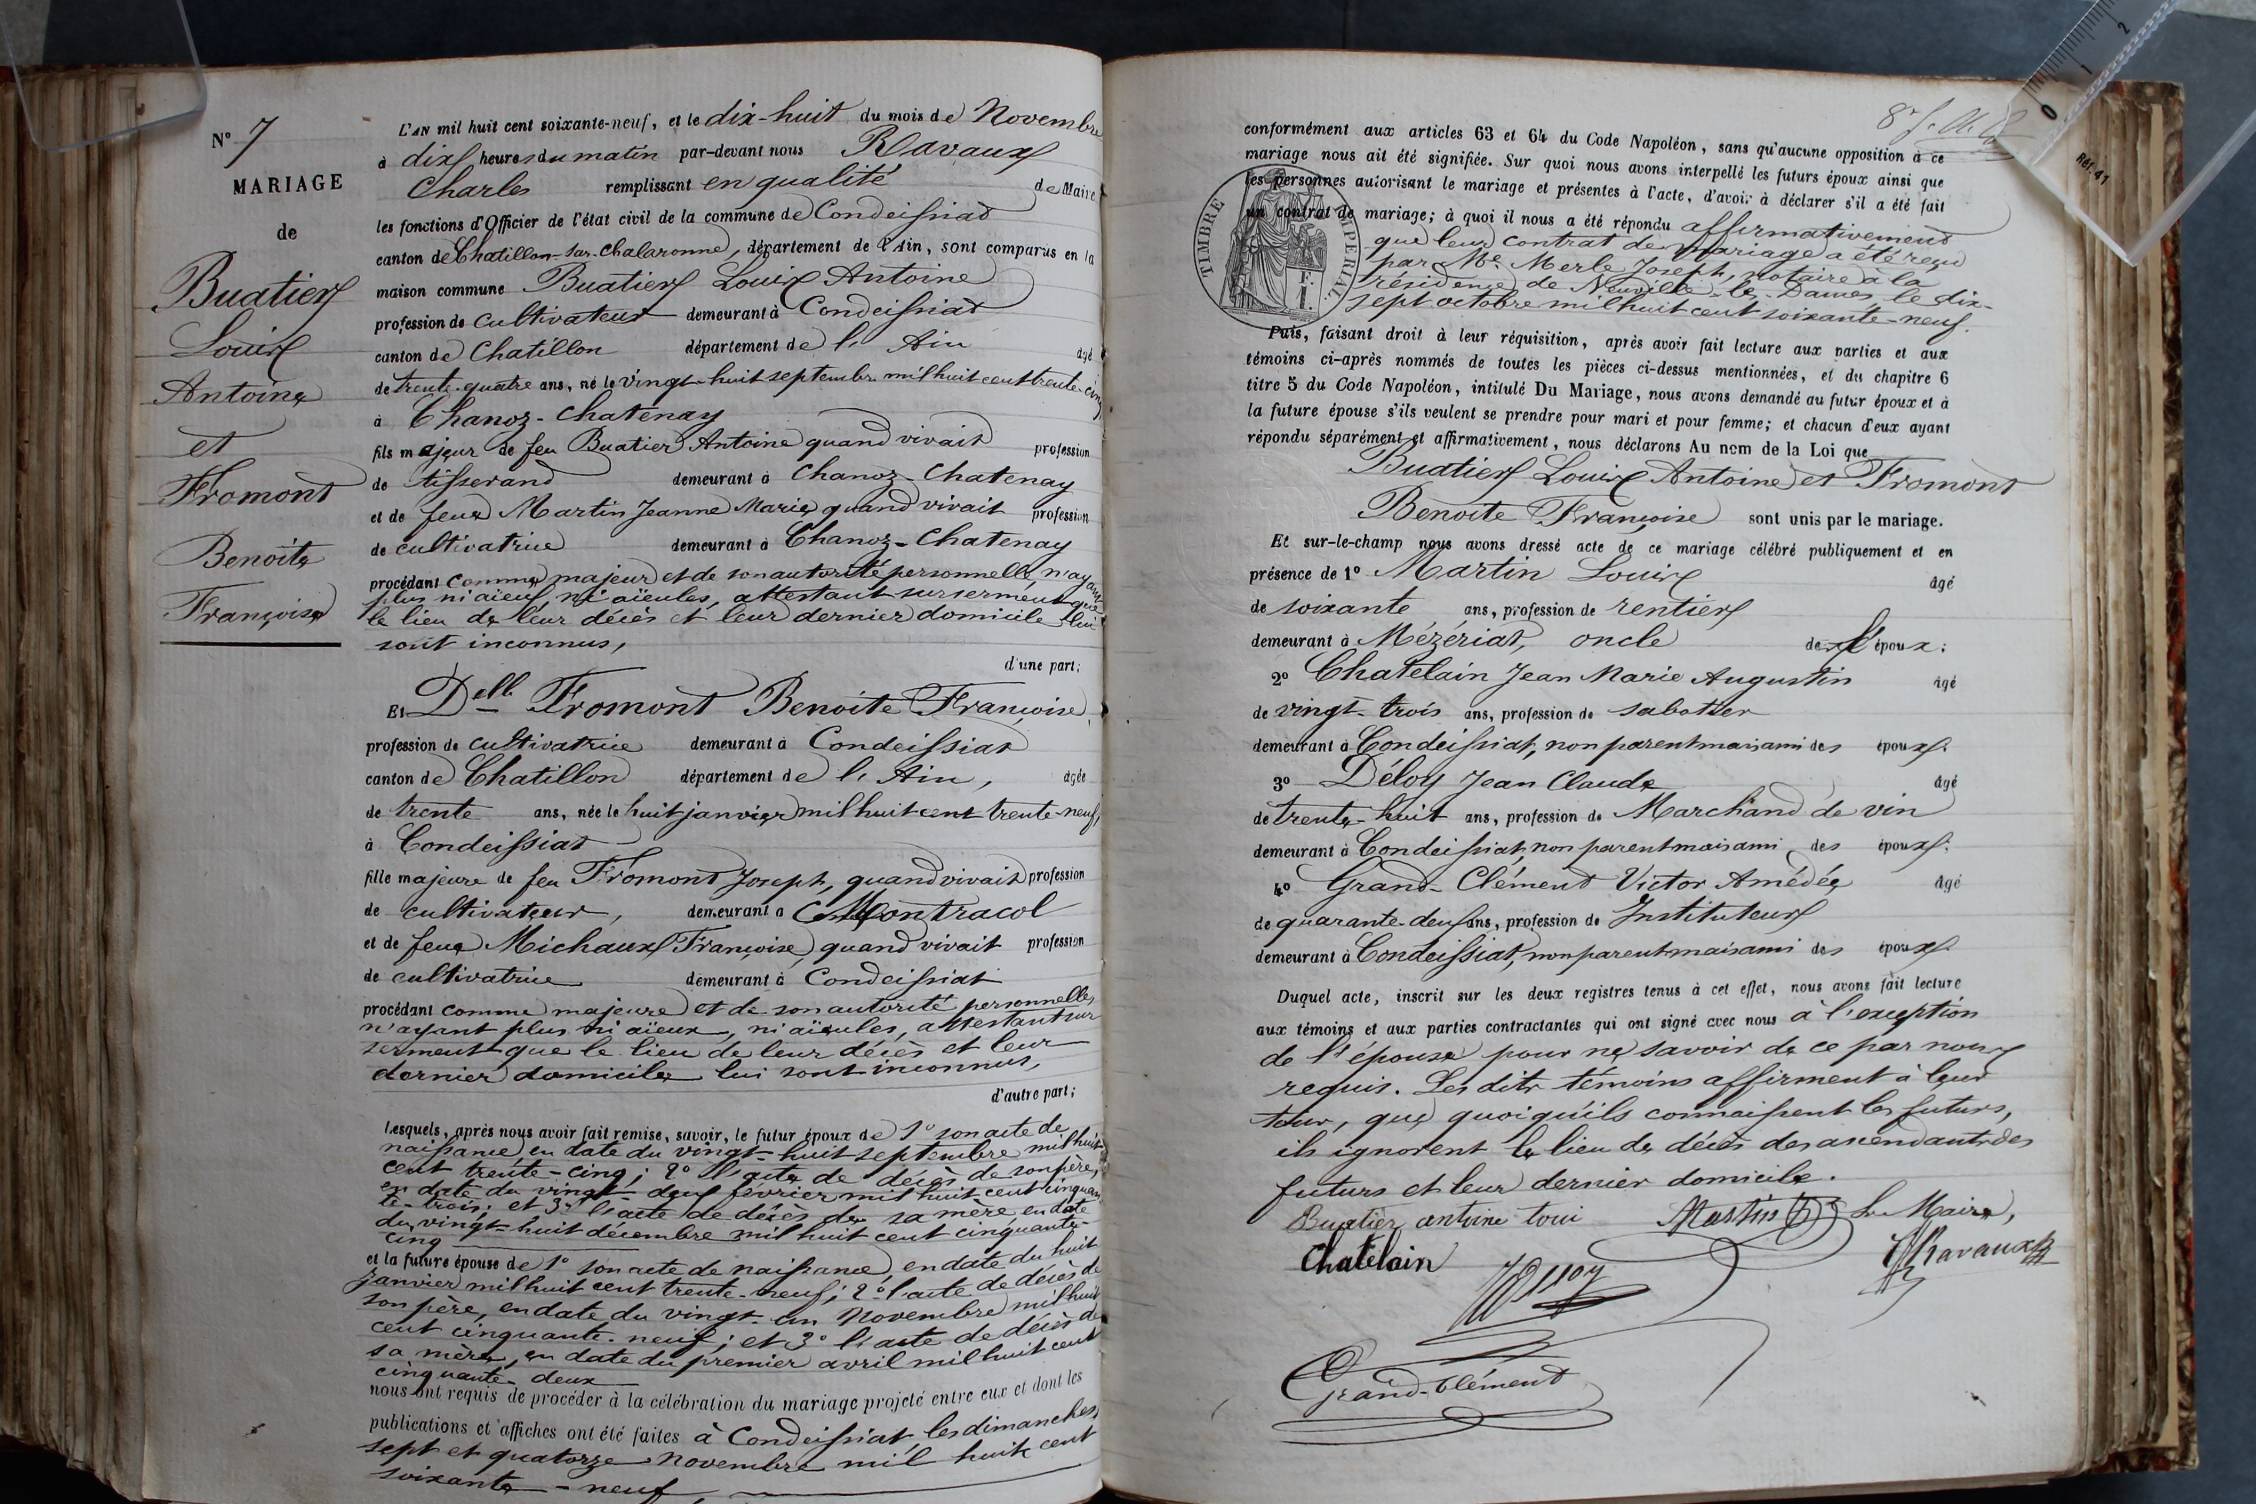 N° 7
MARIAGE
de
Buatier
Louis
Antoine
et
Fromont
Benoite
Françoise
L'AN mil huit cent soixante-neuf, et le dix-huit du mois de Novembre
à dix heures du matin par-devant nous Ravaux
Charles remplissant en qualité de Maire
les fonctions d'Officier de l'état civil de la commune de Condeissiat
canton de Chatillon-sur-Chalaronne, département de l'Ain, sont comparus en la
maison commune Buatier Louis Antoine
profession de cultivateur demeurant à Condeissiat
canton de Chatillon département de l'Ain âgé
de trente-quatre ans, né le vingt-huit septembre mil huit cent trente-cinq
à Chanoz-Chatenay
fils majeur de feu Buatier Antoine quand vivait profession
de tisserand demeurant à Chanoz-Chatenay
et de feue Martin Jeanne Marie quand vivait profession
de cultivatrice demeurant à Chanoz-Chatenay
procédant comme majeur et de son autorité personnelle, n'ayant
plus ni aïeux, ni aïeules, attestant sur serment que
le lieu de leur décès et leur dernier domicile lui
sont inconnus,
d'une part;
Et Delle Fromont Benoite Françoise,
profession de cultivatrice demeurant à Condeissiat
canton de Chatillon département de l'Ain, âgée
de trente ans, née le huit janvier mil huit cent trente-neuf,
à Condeissiat
fille majeure de feu Fromont Joseph, quand vivait profession
de cultivateur, demeurant à Montracol
et de feue Michaux Françoise quand vivait profession
de cultivatrice demeurant à Condeissiat
procédant comme majeure et de son autorité personnelle,
n'ayant plus ni aïeux, ni aïeules, attestant sur
serment que le lieu de leur décès et leur
dernier domicile lui sont inconnus,
d'autre part;
Lesquels, après nous avoir fait remise, savoir, le futur époux de 1° son acte de
naissance en date du vingt-huit septembre mil huit
cent trente-cinq; 2° l'acte de décès de son père,
en date du vingt-deux février mil huit cent cinquan-
te-trois; et 3° l'acte de décès de sa mère en date
du vingt-huit décembre mil huit cent cinquante-
cinq
et la future épouse de 1° son acte de naissance, en date du huit
janvier mil huit cent trente-neuf; 2° l'acte de décès de
son père, en date du vingt-un Novembre mil huit
cent cinquante-neuf; et 3° l'acte de décès de
sa mère, en date du premier avril mil huit cent
cinquante-deux
nous ont requis de procéder à la célébration du mariage projeté entre eux et dont les
publications et affiches ont été faites à Condeissiat, les dimanches
sept et quatorze Novembre mil huit cent
soixante-neuf,
conformément aux articles 63 et 64 du Code Napoléon, sans qu'aucune opposition à ce
mariage nous ait été signifiée. Sur quoi nous avons interpellé les futurs époux ainsi que
les personnes autorisant le mariage et présentes à l'acte, d'avoir à déclarer s'il a été fait
un contrat de mariage; à quoi il nous a été répondu affirmativement
que leur contrat de mariage a été reçu
par Me Merle Joseph, notaire à la
résidence de Neuville-les-Dames, le dix-
sept octobre mil huit cent soixante-neuf.
TIMBRE IMPERIAL
F. I.
Puis, faisant droit à leur réquisition, après avoir fait lecture aux parties et aux
témoins ci-après nommés de toutes les pièces ci-dessus mentionnées, et du chapitre 6
titre 5 du Code Napoléon, intitulé Du Mariage, nous avons demandé au futur époux et à
la future épouse s'ils veulent se prendre pour mari et pour femme; et chacun d'eux ayant
répondu séparément et affirmativement, nous déclarons Au nom de la Loi que
Buatier Louis Antoine et Fromont
Benoite Françoise sont unis par le mariage.
Et sur-le-champ nous avons dressé acte de ce mariage célébré publiquement et en
présence de 1° Martin Louis âgé
de soixante ans, profession de rentier
demeurant à Mézériat, oncle de l'époux;
2° Chatelain Jean Marie Augustin âgé
de vingt-trois ans, profession de sabotier
demeurant à Condeissiat, non parent mais ami des époux.
3° Déloy Jean Claude âgé
de trente-huit ans, profession de Marchand de vin
demeurant à Condeissiat, non parent mais ami des époux;
4° Grand-Clément Victor Amédée âgé
de quarante-deux ans, profession de Instituteur
demeurant à Condeissiat, non parent mais ami des époux.
Duquel acte, inscrit sur les deux registres tenus à cet effet, nous avons fait lecture
aux témoins et aux parties contractantes qui ont signé avec nous à l'exception
de l'épouse pour ne savoir de ce par nous
requis. Les dits témoins affirment à leur
tour, que quoiqu'ils connaissent les futurs,
ils ignorent le lieu de décès des ascendants des
futurs et leur dernier domicile.
Buatier antoine loui Martin Le Maire,
Chatelain Ravaux
Grand-Clément
0 1 2
Réf. 41